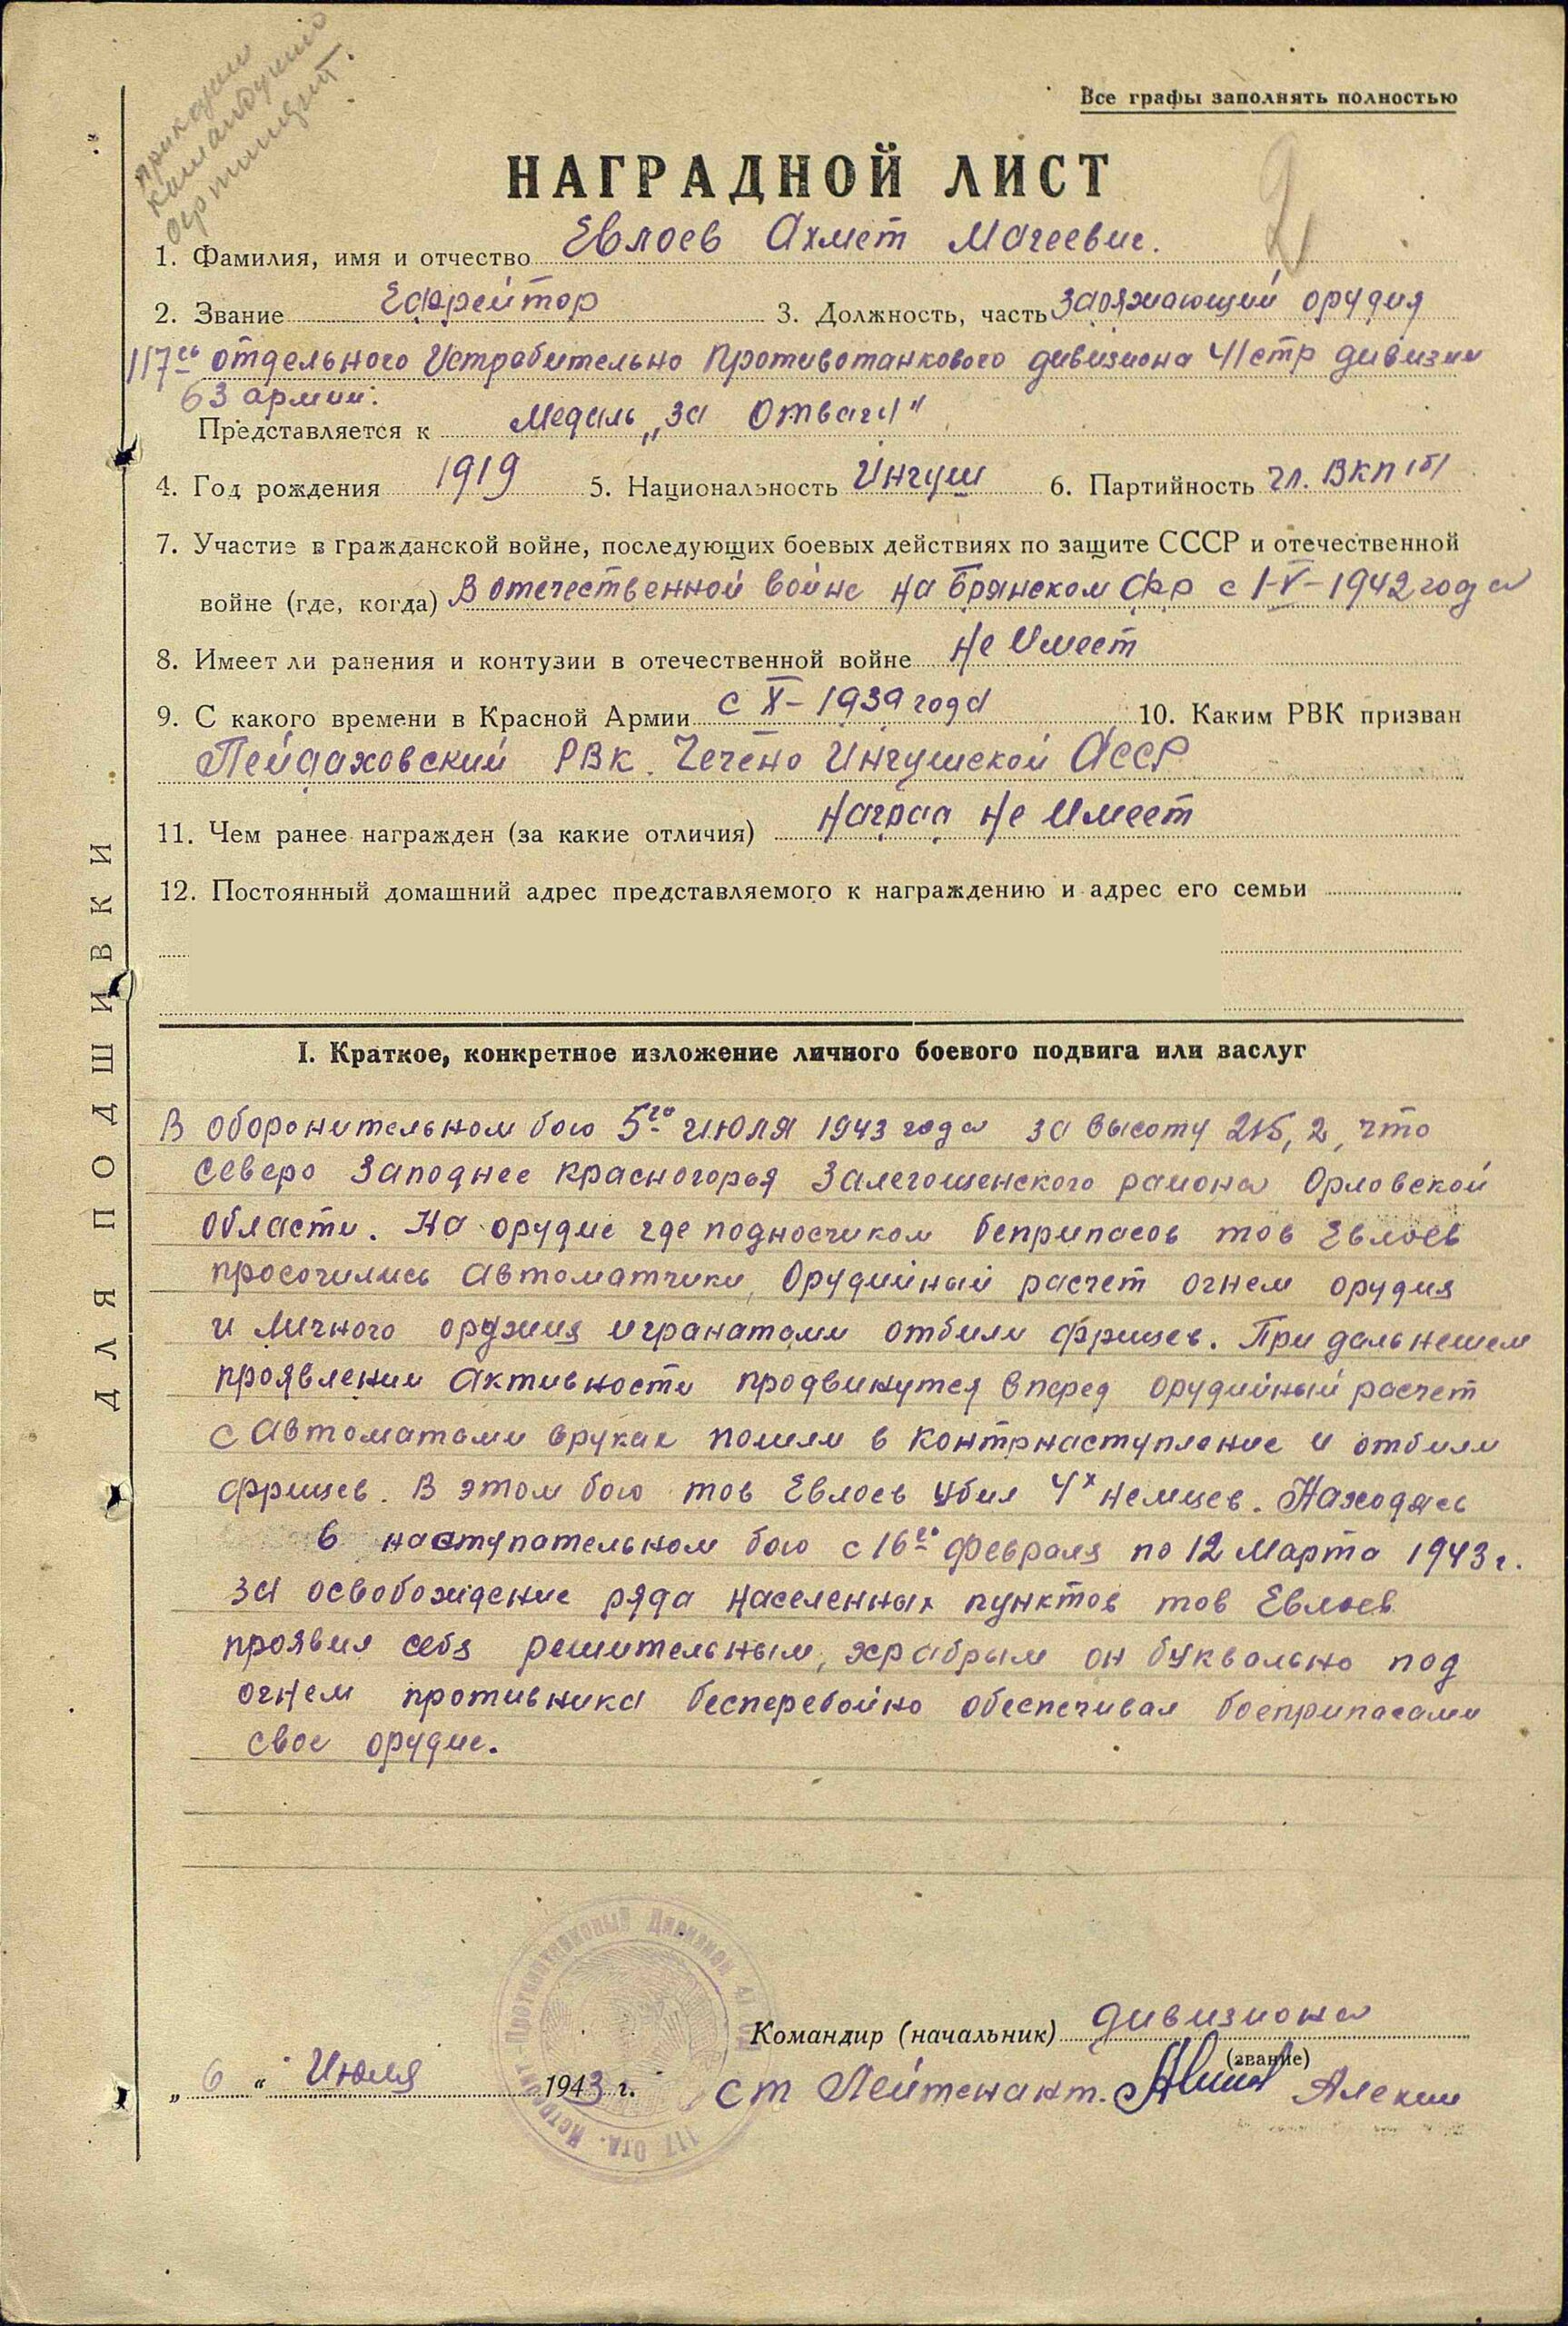 приказом
командующего
артиллерией.
Все графы заполнять полностью
НАГРАДНОЙ ЛИСТ
2
1. Фамилия, имя и отчество Евлоев Ахмет Магеевич.
2. Звание Ефрейтор 3. Должность, часть заряжающий орудия
117го отдельного Истребительно Противотанкового дивизиона 41 стр дивизии
63 армии.
Представляется к Медаль „За Отвагу"
4. Год рождения 1919 5. Национальность Ингуш 6. Партийность чл. ВКП(б)
7. Участие в гражданской войне, последующих боевых действиях по защите СССР и отечественной
войне (где, когда) В отечественной войне на Брянском Фр с 1-V-1942 года
8. Имеет ли ранения и контузии в отечественной войне Не Имеет
9. С какого времени в Красной Армии с X-1939 года 10. Каким РВК призван
Пейдаховский РВК. Чечено Ингушской АССР
11. Чем ранее награжден (за какие отличия) Наград Не Имеет
12. Постоянный домашний адрес представляемого к награждению и адрес его семьи
ДЛЯ ПОДШИВКИ
I. Краткое, конкретное изложение личного боевого подвига или заслуг
В оборонительном бою 5го июля 1943 года за высоту 215,2, что
северо Западнее Красногорья Залегощенского района Орловской
области. На орудие где подносчиком беприпасов тов Евлоев
просочились Автоматчики, Орудийный расчет огнем орудия
и личного оружия и гранатами отбили фрицев. При дальнешем
проявлении Активности продвинутся вперед орудийный расчет
с Автоматами вруках пошли в контрнаступление и отбили
фрицев. В этом бою тов Евлоев убил 4х немцев. Находясь
в наступательном бою с 16го февраля по 12 Марта 1943 г.
за освобождение ряда населенных пунктов тов Евлоев
проявил себя решительным, храбрым он буквально под
огнем противника бесперебойно обеспечивал боеприпасами
свое орудие.
Командир (начальник) дивизиона
(звание)
„ 6 " Июля 1943 г. ст Лейтенант. Алекин
117 Отд. Истребит.-Противотанковый Дивизион 41